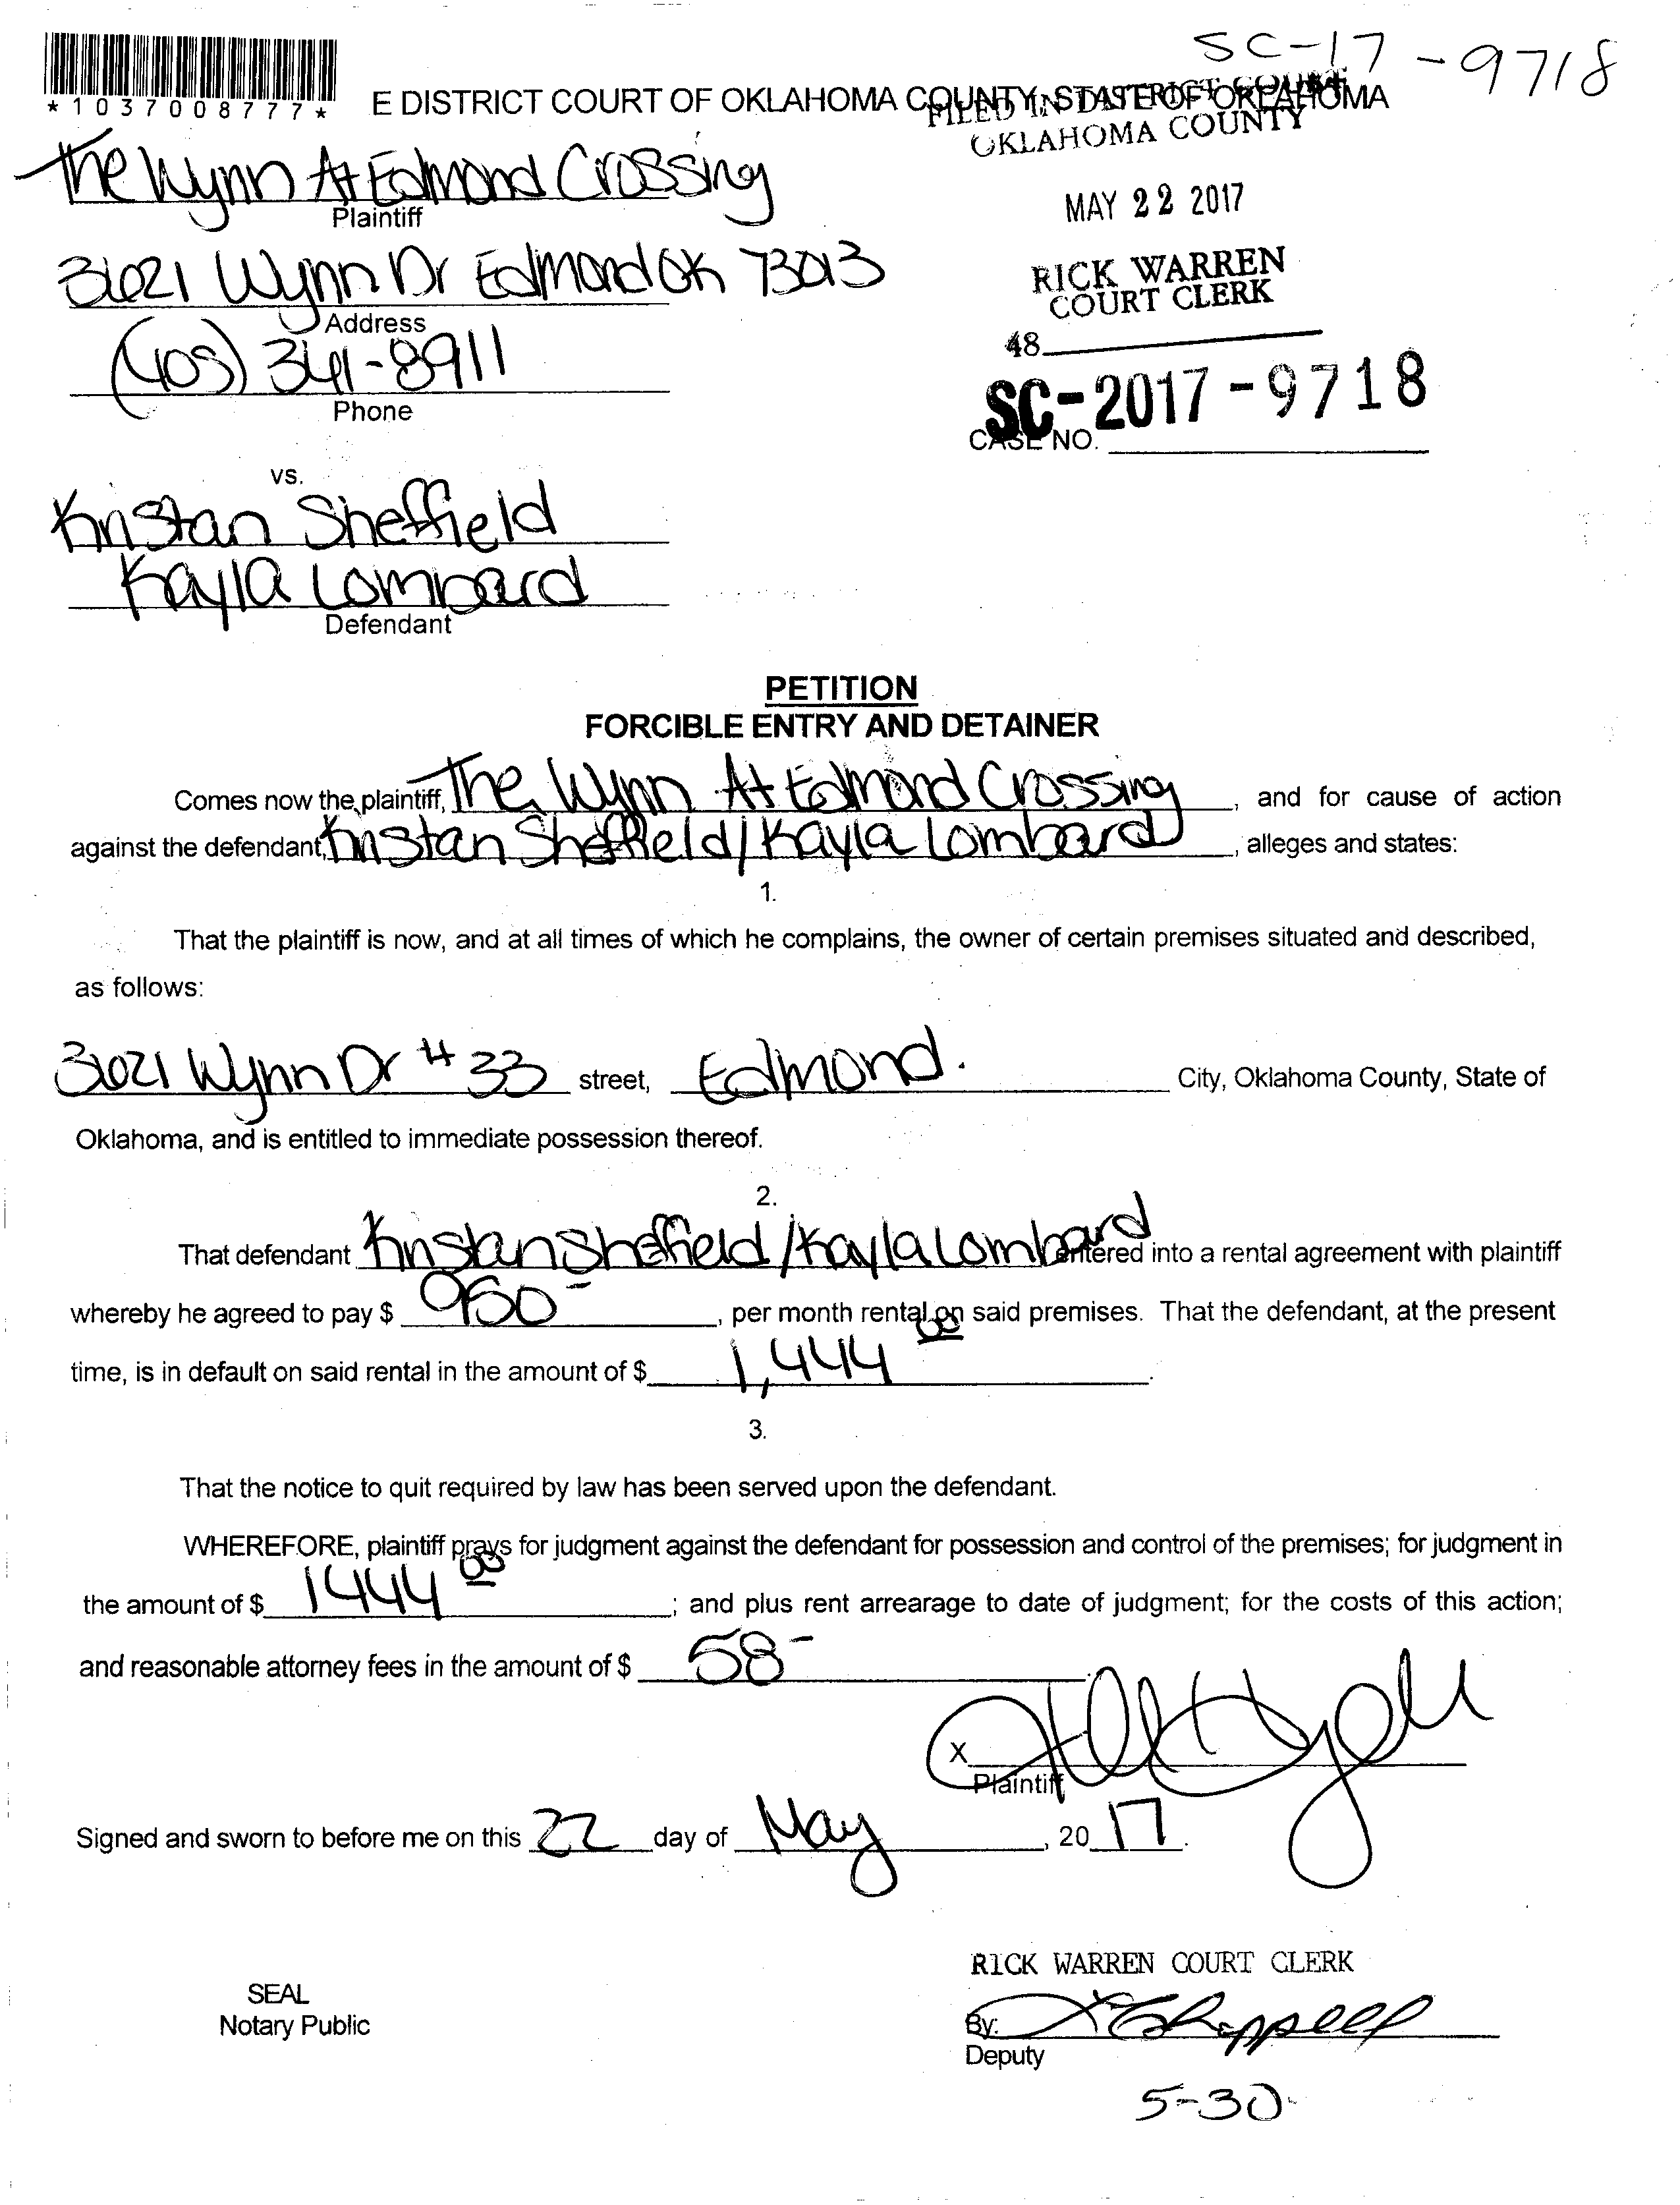 SC-17-9718
*1037008777*
E DISTRICT COURT OF OKLAHOMA COUNTY, STATE OF OKLAHOMA
FILED IN DISTRICT COURT
OKLAHOMA COUNTY
The Wynn At Edmond Crossing
Plaintiff
MAY 22 2017
3621 Wynn Dr Edmond OK 73013
Address
RICK WARREN
COURT CLERK
(405) 341-8911
Phone
48
SC-2017-9718
CASE NO.
vs.
Kristan Sheffield
Kayla Lombard
Defendant
PETITION
FORCIBLE ENTRY AND DETAINER
Comes now the plaintiff, The Wynn At Edmond Crossing, and for cause of action
against the defendant, Kristan Sheffield/Kayla Lombard, alleges and states:
1.
That the plaintiff is now, and at all times of which he complains, the owner of certain premises situated and described,
as follows:
3621 Wynn Dr #33 street, Edmond. City, Oklahoma County, State of
Oklahoma, and is entitled to immediate possession thereof.
2.
That defendant Kristan Sheffield/Kayla Lombard entered into a rental agreement with plaintiff
whereby he agreed to pay $ 950-, per month rental on said premises. That the defendant, at the present
time, is in default on said rental in the amount of $ 1,444 00.
3.
That the notice to quit required by law has been served upon the defendant.
WHEREFORE, plaintiff prays for judgment against the defendant for possession and control of the premises; for judgment in
the amount of $ 1444 00; and plus rent arrearage to date of judgment; for the costs of this action;
and reasonable attorney fees in the amount of $ 58-.
X
Plaintiff
Signed and sworn to before me on this 22 day of May, 2017.
RICK WARREN COURT CLERK
SEAL
Notary Public
By:
Deputy
5-30